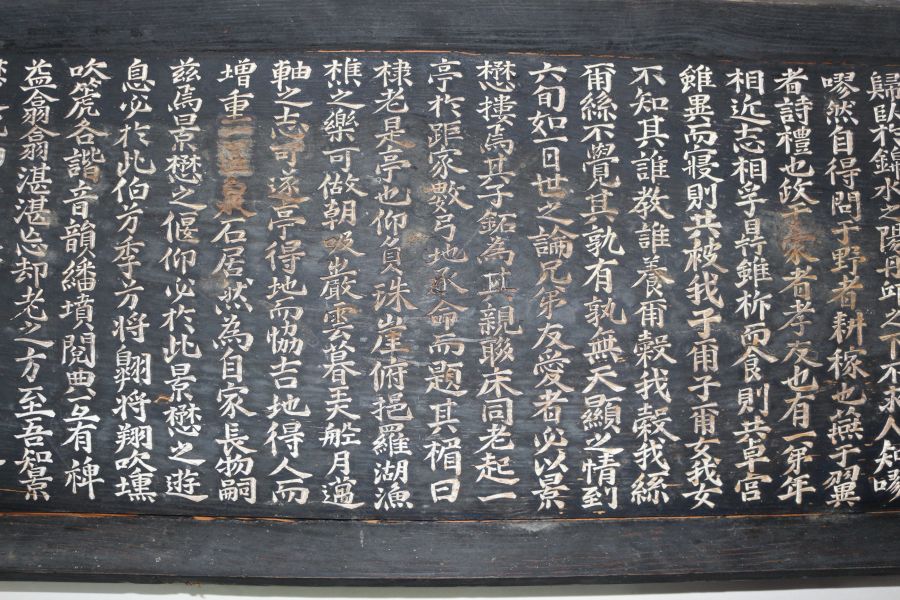 歸臥於錦水之陽丹丘之下不求人知嘐
嘐然自得問于野者耕稼也燕于翼
者詩禮也政于家者孝友也有一弟年
相近志相孚㬥雖析而食則共卓宮
雖異而寢則共被我子甫子爾女我女
不知其誰教誰養甭穀我穀我絲
爾絲不覺其孰有孰無天顯之情到
六旬如一日世之論兄弟友愛者必以景
懋摟焉其子鉐為其親聯床同老起一
亭於距家數弓地承命而題其楣曰
棣老是亭也仰負珠崖俯挹羅湖漁
樵之樂可做朝吸巖雲暮美舩月薖
軸之志可遂亭得地而恊吉地得人而
增重一區泉石居然為自家長物嗣
玆焉景懋之偃仰必於此景懋之遊
息必於此伯方季方將翺將翔吹壎
吹箎各諧音韻繙墳閱典互有裨
益翕翕湛湛忘却老之方至吾知景